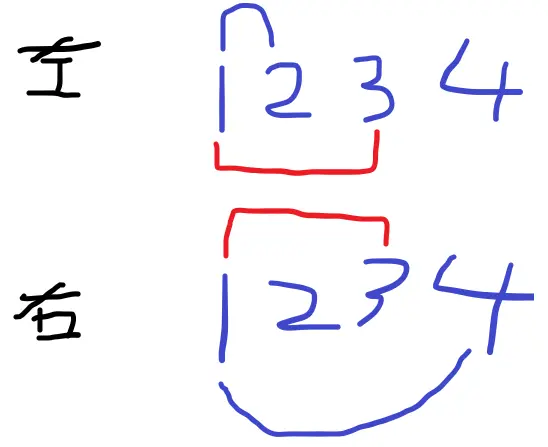 左 1 2 3 4
右 1 2 3 4